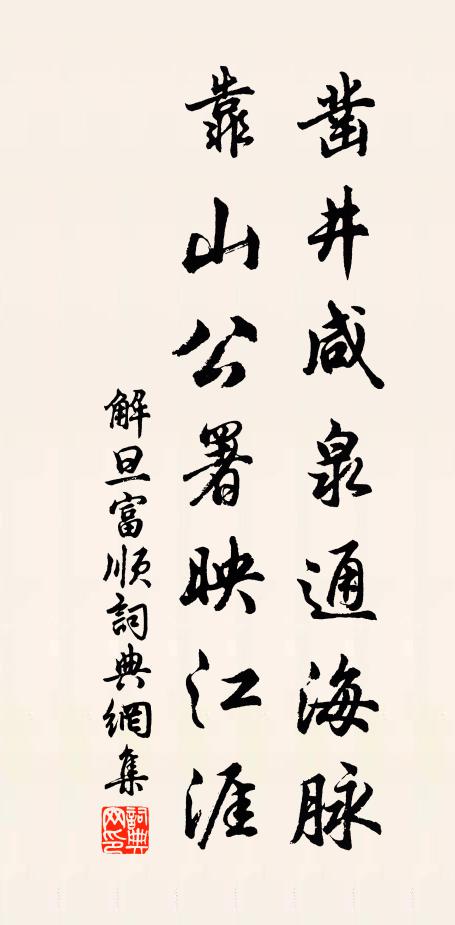 凿井咸泉通海脉
靠山公署映江涯
解旦富順詞典網集
詞典網印